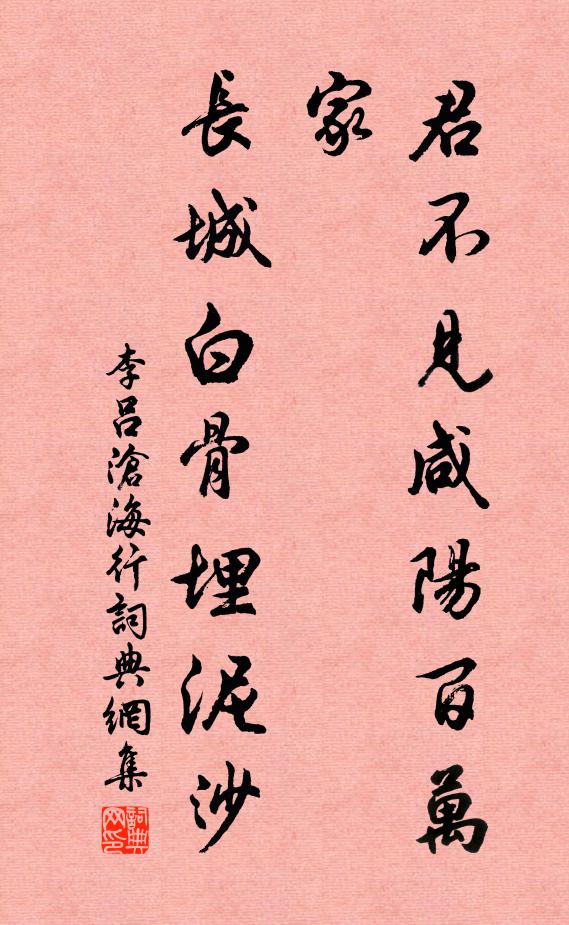 君不見咸陽百萬
家
長城白骨埋泥沙
李呂滄海行詞典網集
詞典
网印